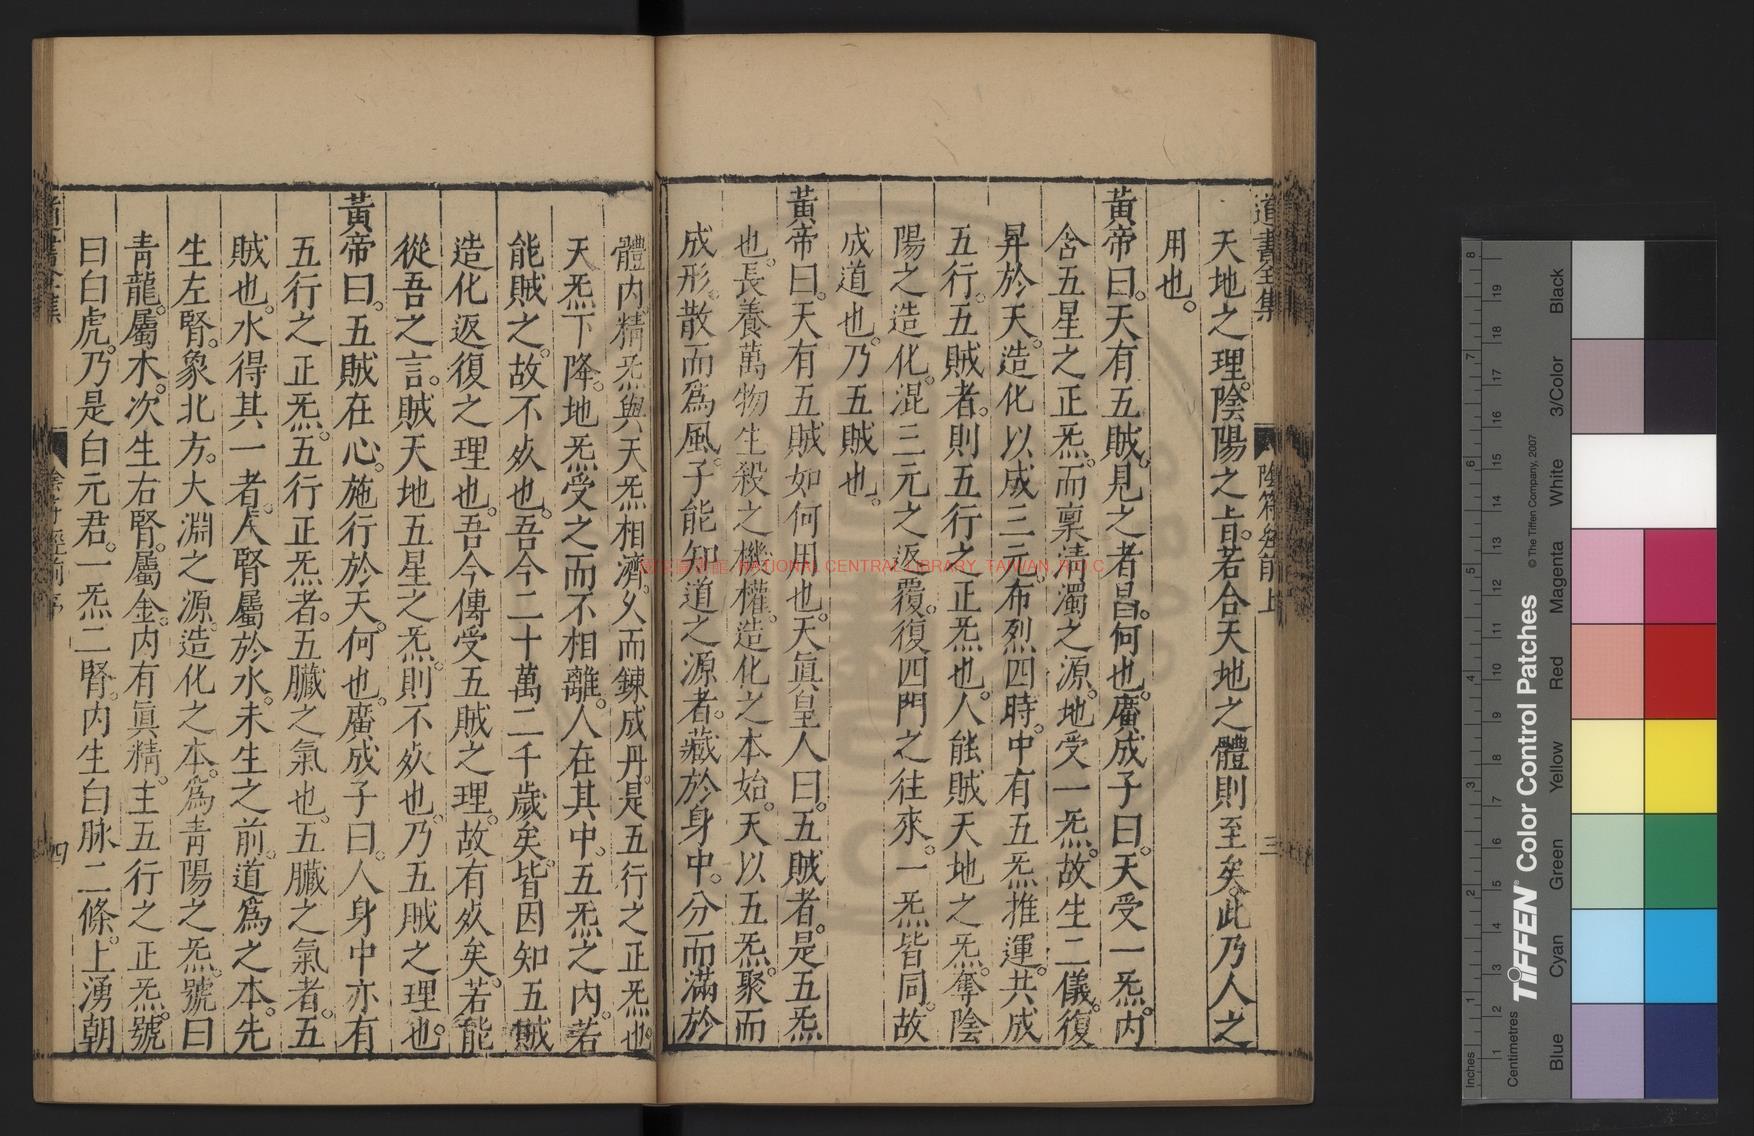 道書全集
陰符經前上
三
天地之理。陰陽之旨。若合天地之體則至矣。此乃人之
用也。
黃帝曰。天有五賊。見之者昌。何也。廣成子曰。天受一炁。内
含五星之正炁。而稟清濁之源。地受一炁。故生二儀。復
昇於天。造化以成三元。布烈四時。中有五炁推運。共成
五行。五賊者。則五行之正炁也。人能賊天地之炁。奪陰
陽之造化。混三元之返覆。復四門之往來。一炁皆同。故
成道也。乃五賊也。
黃帝曰。天有五賊如何用也。天眞皇人曰。五賊者。是五炁
也。長養萬物生殺之機權。造化之本始。天以五炁。聚而
成形。散而爲風。子能知道之源者。藏於身中。分而滿於
體内。精炁與天炁相濟。久而鍊成丹。是五行之正炁也。
天炁下降。地炁受之而不相離。人在其中。五炁之内。若
能賊之。故不㱙也。吾今二十萬二千歲矣。皆因知五賊
造化返復之理也。吾今傳受五賊之理。故有㱙矣。若能
從吾之言。賊天地五星之炁。則不㱙也。乃五賊之理也。
黃帝曰。五賊在心。施行於天。何也。廣成子曰。人身中亦有
五行之正炁。五行正炁者。五臟之氣也。五臟之氣者。五
賊也。水得其一者。人腎屬於水。未生之前。道爲之本。先
生左腎。象北方。大淵之源。造化之本。爲青陽之炁。號曰
青龍。屬木。次生右腎。屬金。内有眞精。主五行之正炁。號
曰白虎。乃是白元君。一炁二腎。内生白脉二條。上湧朝
道書全集
陰符經前序
四
NATIONAL CENTRAL LIBRARY, TAIWAN, R.O.C
Inches
Centimetres
TIFFEN® Color Control Patches
© The Tiffen Company, 2007
Blue
Cyan
Green
Yellow
Red
Magenta
White
3/Color
Black
1 2 3 4 5 6 7 8
1 2 3 4 5 6 7 8 9 10 11 12 13 14 15 16 17 18 19